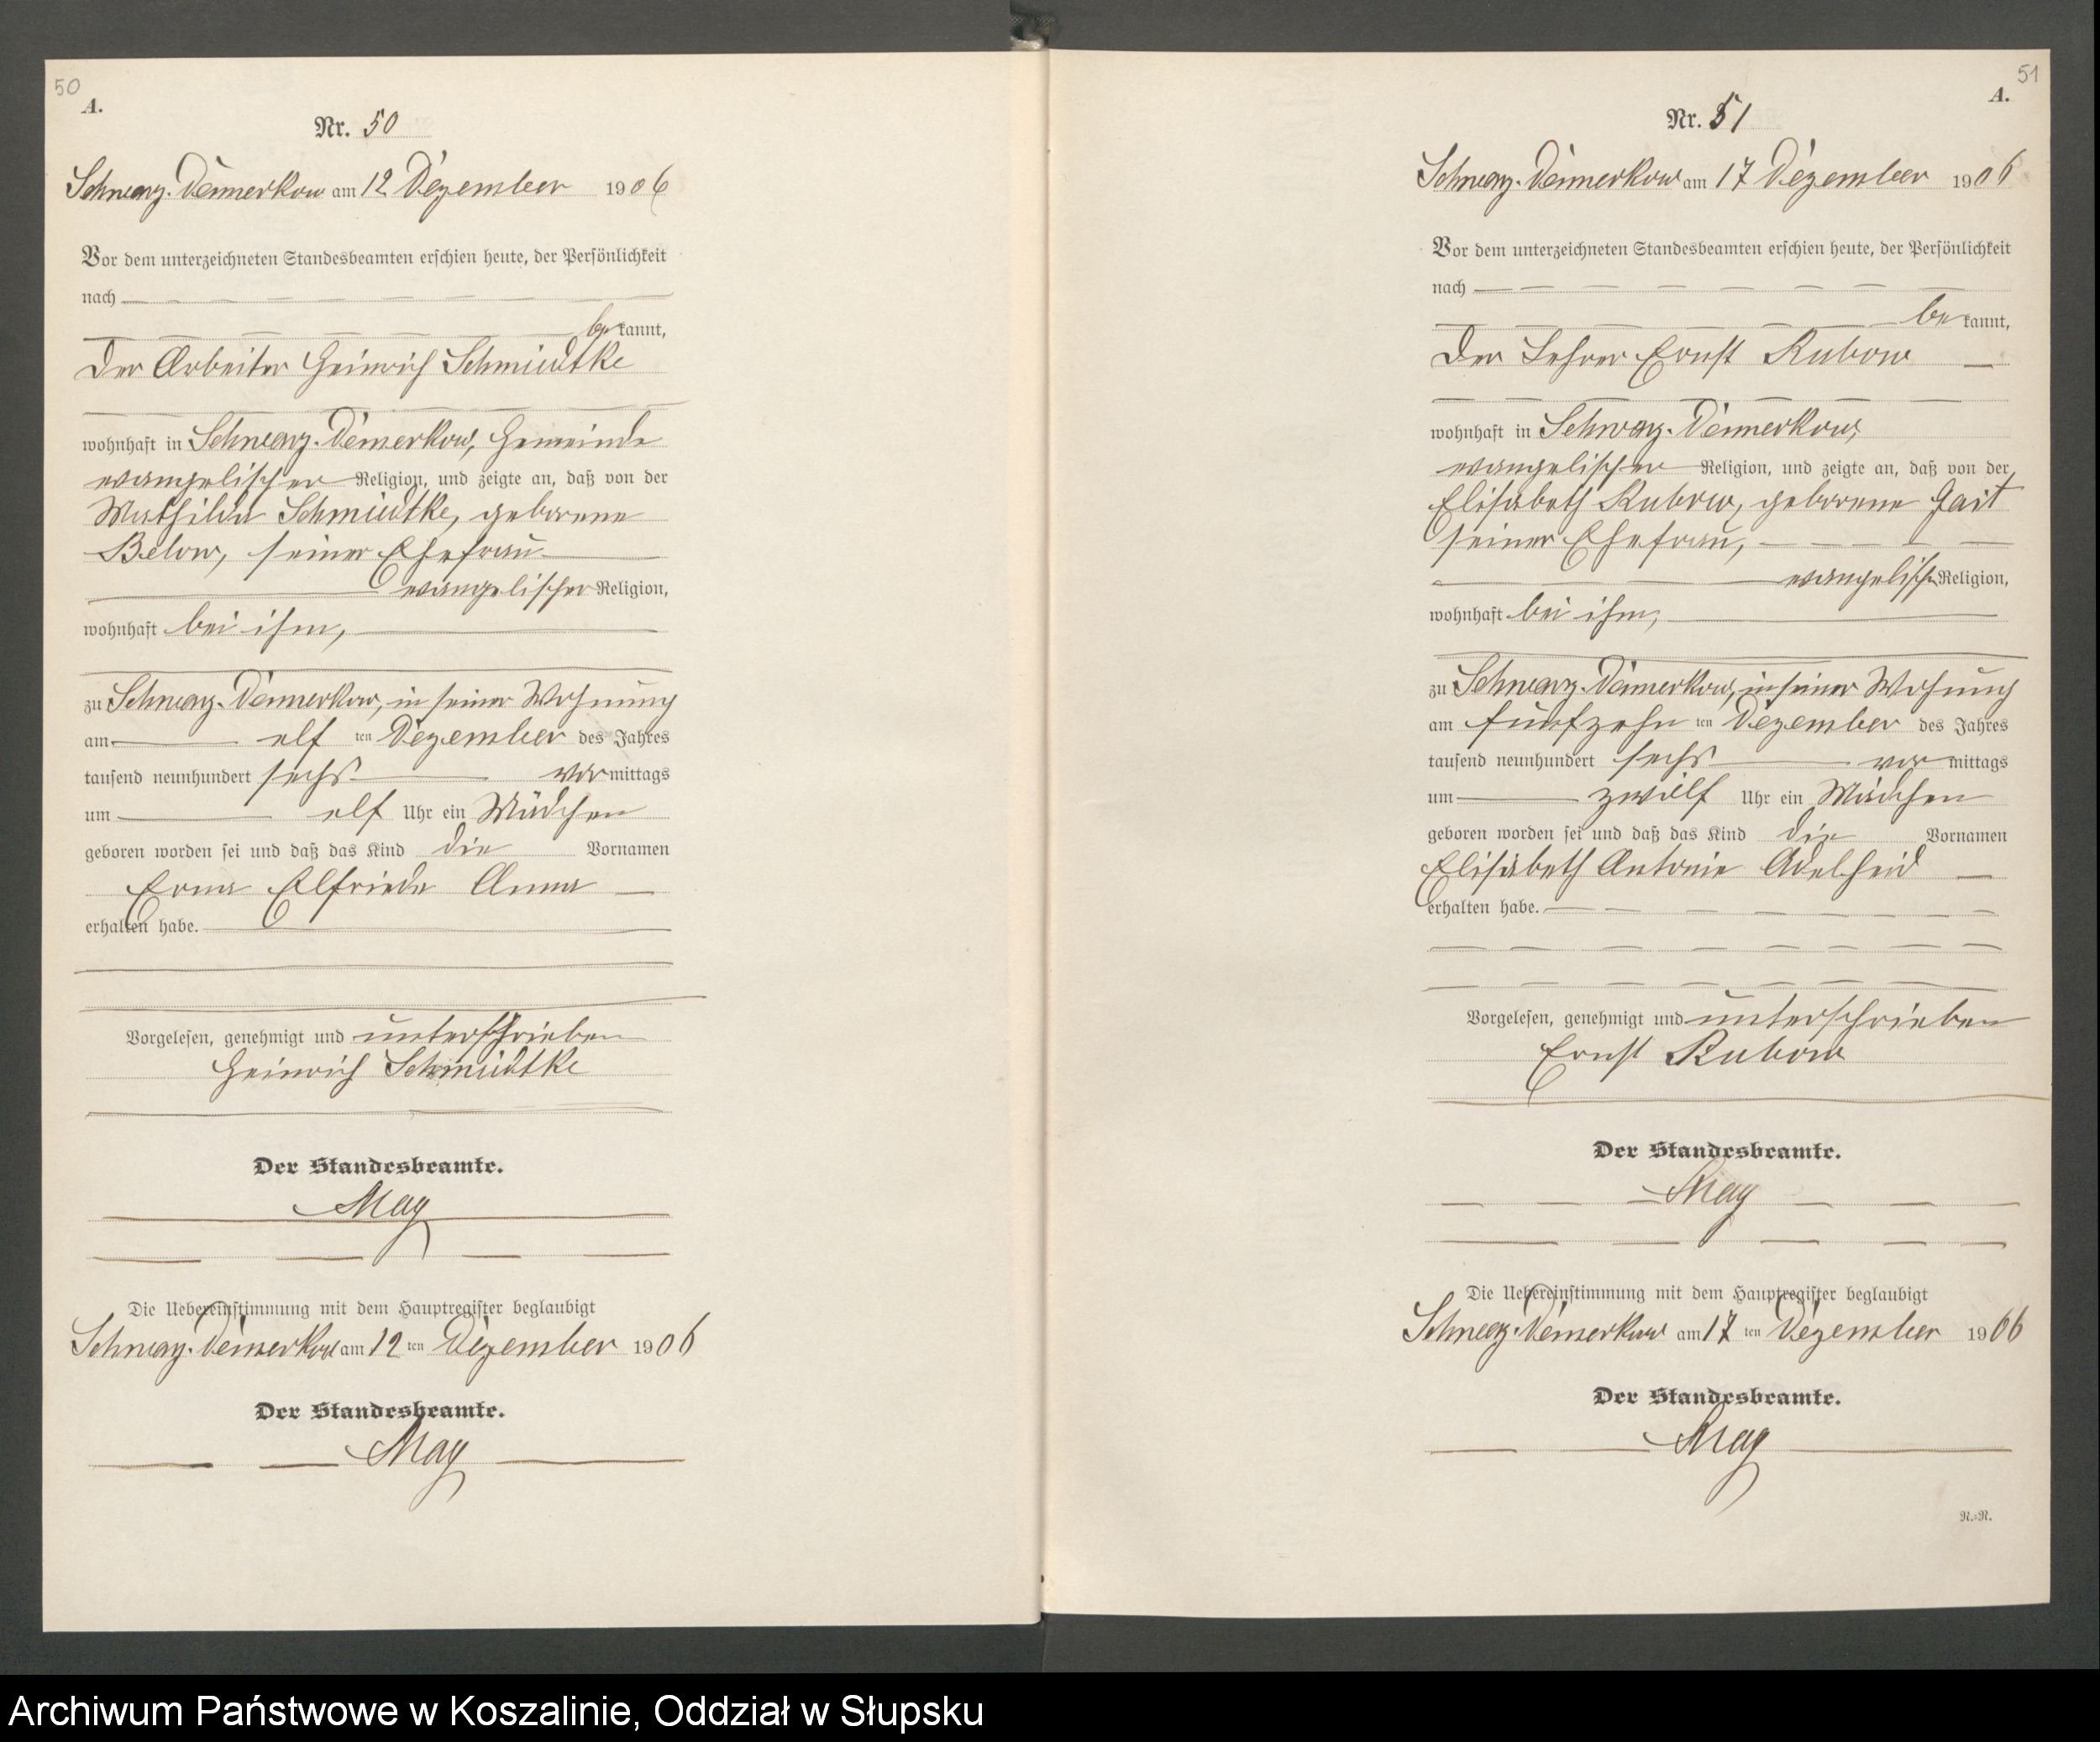 50
A.
Nr. 50
Schwarz-Damerkow am 12 Dezember 1906
Vor dem unterzeichneten Standesbeamten erschien heute, der Persönlichkeit
nach
bekannt,
der Arbeiter Heinrich Schmidtke
wohnhaft in Schwarz-Damerkow, Gemeinde
evangelischer Religion, und zeigte an, daß von der
Mathilde Schmidtke, geborene
Below, seiner Ehefrau
evangelischer Religion,
wohnhaft bei ihm,
zu Schwarz-Damerkow, in seiner Wohnung
am elf ten Dezember des Jahres
tausend neunhundert sechs vormittags
um elf Uhr ein Mädchen
geboren worden sei und daß das Kind die Vornamen
Erna Elfriede Anna
erhalten habe.
Vorgelesen, genehmigt und unterschrieben
Heinrich Schmidtke
Der Standesbeamte.
May
Die Uebereinstimmung mit dem Hauptregister beglaubigt
Schwarz-Damerkow am 12 ten Dezember 1906
Der Standesbeamte.
May
51
A.
Nr. 51
Schwarz-Damerkow am 17 Dezember 1906
Vor dem unterzeichneten Standesbeamten erschien heute, der Persönlichkeit
nach
bekannt,
der Lehrer Ernst Rubow
wohnhaft in Schwarz-Damerkow,
evangelischer Religion, und zeigte an, daß von der
Elisabeth Rubow, geborene
seiner Ehefrau,
evangelisch Religion,
wohnhaft bei ihm,
zu Schwarz-Damerkow, in seiner Wohnung
am fünfzehn ten Dezember des Jahres
tausend neunhundert sechs vormittags
um zwölf Uhr ein Mädchen
geboren worden sei und daß das Kind die Vornamen
Elisabeth Antonie Adelheid
erhalten habe.
Vorgelesen, genehmigt und unterschrieben
Ernst Rubow
Der Standesbeamte.
May
Die Uebereinstimmung mit dem Hauptregister beglaubigt
Schwarz-Damerkow am 17 ten Dezember 1906
Der Standesbeamte.
May
R.:R.
Archiwum Państwowe w Koszalinie, Oddział w Słupsku